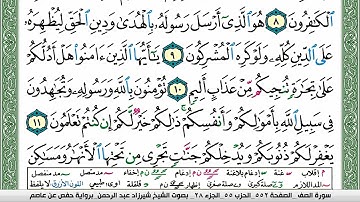 ٱلْكَٰفِرُونَ ٨ هُوَ ٱلَّذِىٓ أَرْسَلَ رَسُولَهُۥ بِٱلْهُدَىٰ وَدِينِ ٱلْحَقِّ لِيُظْهِرَهُۥ
عَلَى ٱلدِّينِ كُلِّهِۦ وَلَوْ كَرِهَ ٱلْمُشْرِكُونَ ٩ يَٰٓأَيُّهَا ٱلَّذِينَ ءَامَنُوا۟ هَلْ أَدُلُّكُمْ
عَلَىٰ تِجَٰرَةٍ تُنجِيكُم مِّنْ عَذَابٍ أَلِيمٍ ١٠ تُؤْمِنُونَ بِٱللَّهِ وَرَسُولِهِۦ وَتُجَٰهِدُونَ
فِى سَبِيلِ ٱللَّهِ بِأَمْوَٰلِكُمْ وَأَنفُسِكُمْ ذَٰلِكُمْ خَيْرٌ لَّكُمْ إِن كُنتُمْ تَعْلَمُونَ ١١
يَغْفِرْ لَكُمْ ذُنُوبَكُمْ وَيُدْخِلْكُمْ جَنَّٰتٍ تَجْرِى مِن تَحْتِهَا ٱلْأَنْهَٰرُ وَمَسَٰكِنَ
سورة الصف الصفحة ٥٥٢ الحزب ٥٥ الجزء ٢٨ بصوت الشيخ شيرزاد عبد الرحمن برواية حفص عن عاصم